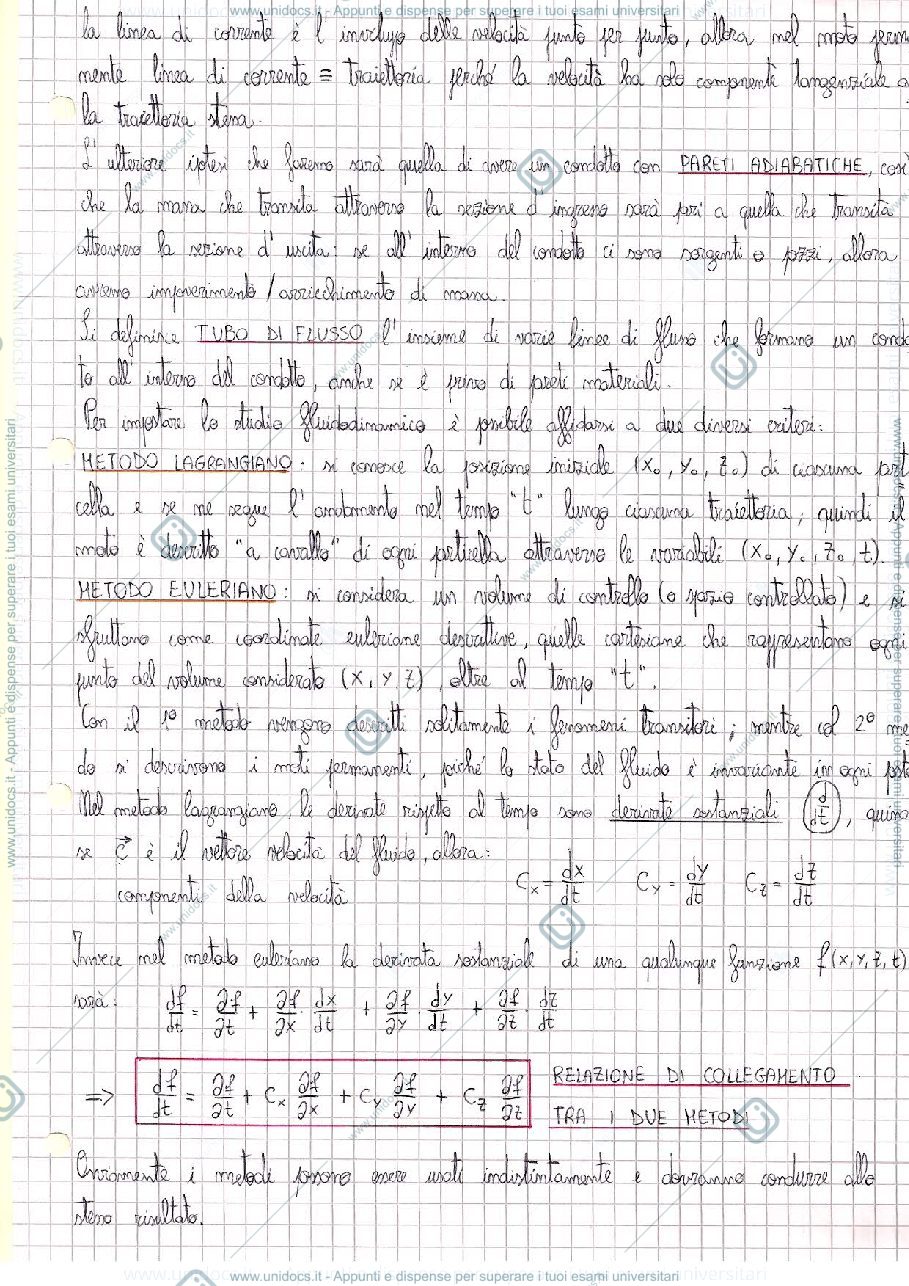 www.unidocs.it - Appunti e dispense per superare i tuoi esami universitari
la linea di corrente è l'inviluppo delle velocità punto per punto, allora nel moto perma
mente linea di corrente ≡ traiettoria perché la velocità ha solo componente tangenziale a
la traiettoria stessa.
L'ulteriore ipotesi che faremo sarà quella di avere un condotto con PARETI ADIABATICHE, così
che la massa che transita attraverso la sezione d'ingresso sarà pari a quella che transita
attraverso la sezione d'uscita: se all'interno del condotto ci sono sorgenti o pozzi, allora
avremo impoverimento / arricchimento di massa.
Si definisce TUBO DI FLUSSO l'insieme di varie linee di flusso che formano un condo
to all'interno del condotto, anche se è privo di pareti materiali.
Per impostare lo studio fluidodinamico è possibile affidarsi a due diversi criteri:
METODO LAGRANGIANO: si conosce la posizione iniziale (x₀, y₀, z₀) di ciascuna part
cella e se ne segue l'andamento nel tempo "t" lungo ciascuna traiettoria, quindi il
moto è descritto "a cavallo" di ogni particella attraverso le variabili (x₀, y₀, z₀, t).
METODO EULERIANO: si considera un volume di controllo (o spazio controllato) e si
sfruttano come coordinate euleriane descrittive, quelle cartesiane che rappresentano ogni
punto del volume considerato (x, y, z), oltre al tempo "t".
Con il 1° metodo vengono descritti solitamente i fenomeni transitori; mentre col 2° me
do si descrivono i moti permanenti, poiché lo stato del fluido è invariante in ogni
Nel metodo lagrangiano, le derivate rispetto al tempo sono derivate sostanziali (d/dt), quin
se c⃗ è il vettore velocità del fluido, allora:
componenti della velocità Cx = dx/dt Cy = dy/dt Cz = dz/dt
Invece nel metodo euleriano la derivata sostanziale di una qualunque funzione f(x,y,z,t)
sarà: df/dt = ∂f/∂t + ∂f/∂x · dx/dt + ∂f/∂y · dy/dt + ∂f/∂z · dz/dt
=> df/dt = ∂f/∂t + Cx ∂f/∂x + Cy ∂f/∂y + Cz ∂f/∂z RELAZIONE DI COLLEGAMENTO
TRA I DUE METODI
Ovviamente i metodi possono essere usati indistintamente e dovranno condurre allo
stesso risultato.
www.unidocs.it - Appunti e dispense per superare i tuoi esami universitari